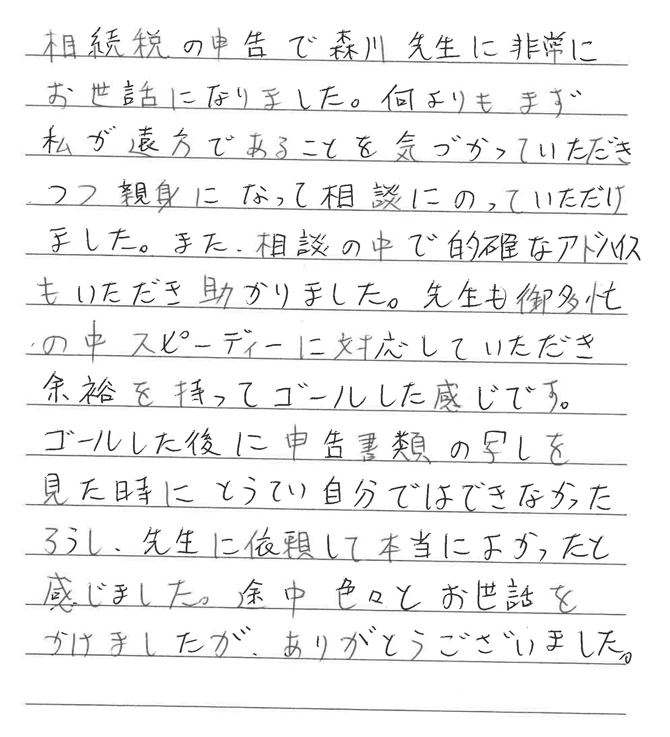 相続税の申告で森川先生に非常に
お世話になりました。何よりもまず
私が遠方であることを気づかっていただき
つつ親身になって相談にのっていただけ
ました。また、相談の中で的確なアドバイス
もいただき助かりました。先生も御多忙
の中スピーディーに対応していただき
余裕を持ってゴールした感じです。
ゴールした後に申告書類の写しを
見た時にとうてい自分ではできなかった
ろうし、先生に依頼して本当によかったと
感じました。途中色々とお世話を
かけましたが、ありがとうございました。